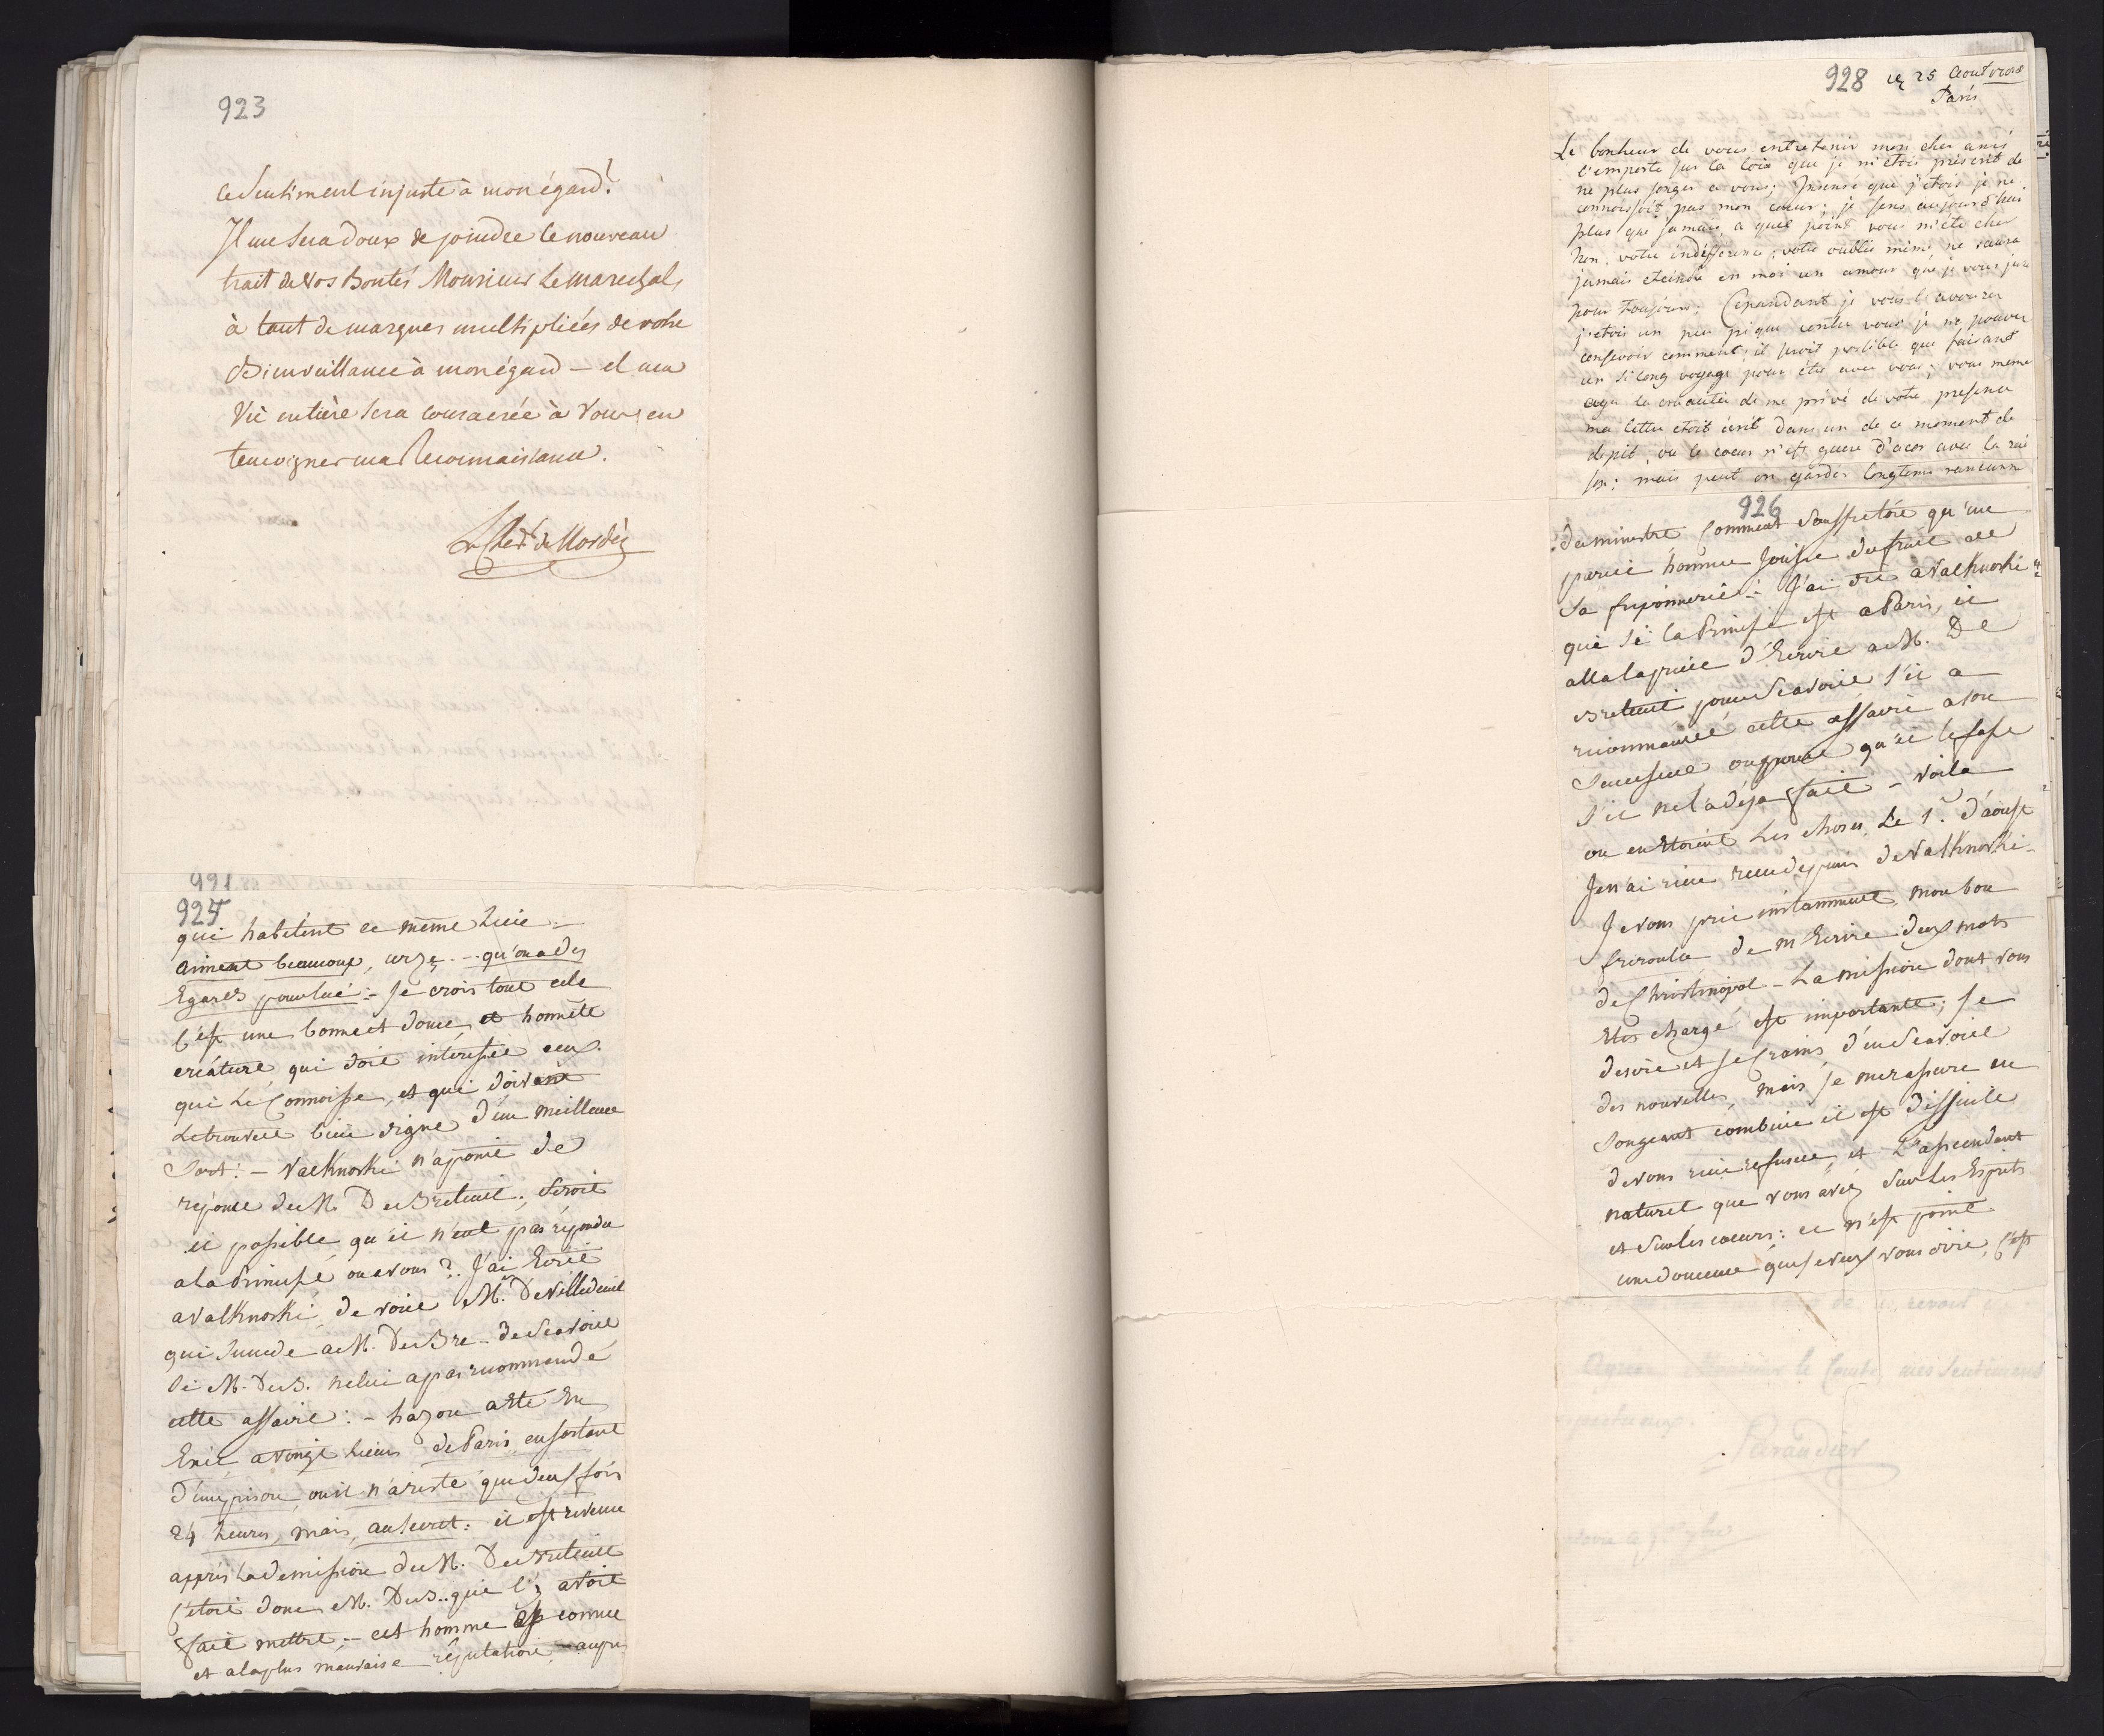 923
ce Sentiment injuste à mon égard?
Il me Sera doux de joindre le nouveau
trait de vos Bontés Monsieur Le Marechal,
à tant de marques multipliées de votre
Bienveillance à mon égard – et ma
Vie entière Sera consacrée à Vous en
temoigner ma Reconnaissance.
991
925
qui habitent le même lieu :-
aiment beaucoup, - - qu'on a des
Egards pour lui :- Je crois tout cela
C'est une bonne et douce, et honnête
créature, qui doit intéresser ceux
qui Le Connoisse, et qui doivent
Le trouver bien digne d'un meilleur
Sort :- Valknoski n'a point de
réponse de M. De Breteuil ; Seroit
il possible qu'il n'eut pas répondu
a la Princesse ou a vous ? J'ai Ecrit
a Valknoski, de voir M. De Villedeuil
qui Succede a M. De Bre - de Scavoir
Si M. De B. ne lui a pas recommandé
cette affaire : - hazon a Eté En
Exil a onze Lieues de Paris en sortant
d'une prison, ou il n'a resté que deux fois
24 heures, mais, au secret : il est revenu
apprés La demission de M. De Breteuil
C'étoit donc M. De B.. qui l'y avoit
fait mettre ;- cet homme est connu
et a la plus mauvaise réputation, - aupr
928 ce 25 Aout
Paris
Le bonheur de vous entretenir mon cher amis
l'emporte sur la loix que je m'etois préscrit de
ne plus songer a vous ; Insensé que j'etois je ne
connoissoit pas mon cœur ; je sens aujourd'hui
plus que jamais, a quel point vous m'éte cher
Non, votre indifférence ; votre oublie même, ne saura
jamais eteindre en moi un amour que je vous jure
pour toujours ; Cepandant je vous l'avouerer
j'etois un peu piqué contre vous je ne pouver
consevoir comment ; il seroit possible que faisant
un si long voyage pour être avec vous ; vous meme
ayez la cruautée de me privé de votre presence
ma lettre etoit écrit dans un de ce moment de
depit, ou le coeur n'est guere d'acor avec la rai
son ; mais peut on garder longtems rancunne
926
du ministre Comment Souffretôn qu'un
pareil homme Jouisse du fruit de
Sa friponnerie :- J'ai dit a Valknoski
que Si la Princesse est a Paris, il
alla la prier d'Ecrire a M. De
Breteuil pour Scavoir s'il a
recommandé cette affaire a son
Successeur ou pour qu'il le fasse
S'il ne l'a déja fait - voila
ou en Etoient Les choses, Le 1er. d'aoust
Je n'ai rien reçu depuis de Valknoski -
Je vous prie instamment, mon bon
de m'Ecrire deux mots
de Christinopol - La mission dont vous
Etes chargé est importante ; Je
desire et Je Crains, d'en Scavoir
des nouvelles, mais Je me rassure en
Songeant combien il est difficile
de vous rien refuser, et L'ascendant
naturel que vous avéz Sur les Esprits
et Sur les coeurs : ce n'est point
une douceur que Je veux vous dire, C'est
revoir
Monsieur le Comte, mes Sentiments